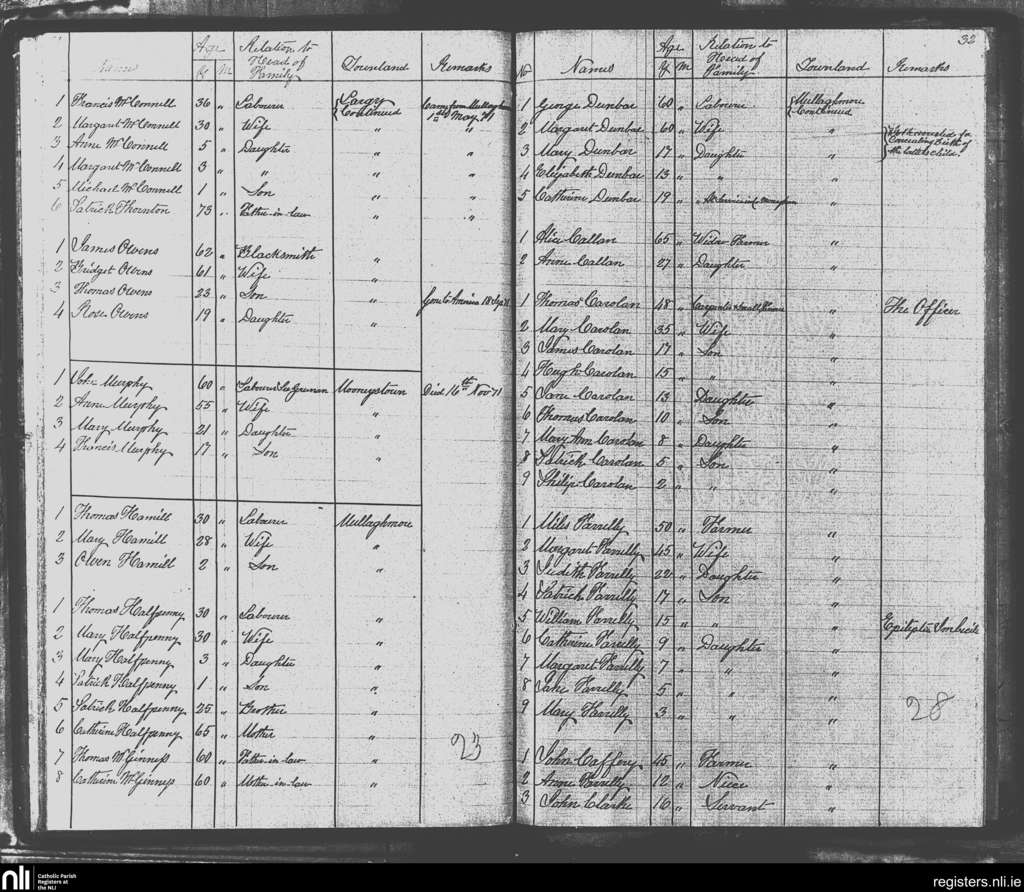 Name Age Y M Relation to Head of Family Townland Remarks
1 Francis McConnell 36 " Labourer Largy Continued Came from Mullagh 1st May 71
2 Margaret McConnell 30 " Wife " "
3 Anne McConnell 5 " Daughter " "
4 Margaret McConnell 3 " " " "
5 Michael McConnell 1 " Son " "
6 Patrick Thornton 73 " Father-in-law " "
1 James Owens 62 " Blacksmith "
2 Bridget Owens 61 " Wife "
3 Thomas Owens 23 " Son " Gone to America 18 Sep 71
4 Rose Owens 19 " Daughter "
1 John Murphy 60 " Labourer Mooneystown Died 16th Nov 71
2 Anne Murphy 55 " Wife "
3 Mary Murphy 21 " Daughter "
4 Francis Murphy 17 " Son "
1 Thomas Hamill 30 " Labourer Mullaghmore
2 Mary Hamill 28 " Wife "
3 Owen Hamill 2 " Son "
1 Thomas Halfpenny 30 " Labourer "
2 Mary Halfpenny 30 " Wife "
3 Mary Halfpenny 3 " Daughter "
4 Patrick Halfpenny 1 " Son "
5 Patrick Halfpenny 25 " Brother "
6 Catherine Halfpenny 65 " Mother "
7 Thomas McGinness 60 " Father-in-law "
8 Catherine McGinness 60 " Mother-in-law "
23
32
No Names Age Y M Relation to Head of Family Townland Remarks
1 George Dunbar 60 " Labourer Mullaghmore Continued
2 Margaret Dunbar 60 " Wife "
3 Mary Dunbar 17 " Daughter " birth of the latter's child.
4 Elizabeth Dunbar 13 " " "
5 Catherine Dunbar 19 "
1 Alice Callan 65 " Widow Farmer "
2 Anne Callan 27 " Daughter "
1 Thomas Carolan 48 " Carpenter & small Farmer " The Officer
2 Mary Carolan 35 " Wife "
3 James Carolan 17 " Son "
4 Hugh Carolan 15 " " "
5 Jane Carolan 13 " Daughter "
6 Thomas Carolan 10 " Son "
7 Mary Ann Carolan 8 " Daughter "
8 Patrick Carolan 5 " Son "
9 Philip Carolan 2 " " "
1 Miles Farrelly 50 " Farmer "
2 Margaret Farrelly 45 " Wife "
3 Judith Farrelly 22 " Daughter "
4 Patrick Farrelly 17 " Son "
5 William Farrelly 15 " " " Epileptic Imbecile
6 Catherine Farrelly 9 " Daughter "
7 Margaret Farrelly 7 " " "
8 Jane Farrelly 5 " " "
9 Mary Farrelly 3 " " "
28
1 John Caffery 45 " Farmer "
2 Anne Farrelly 12 " Niece "
3 John Clarke 16 " Servant "
nli Catholic Parish Registers at the NLI
registers.nli.ie